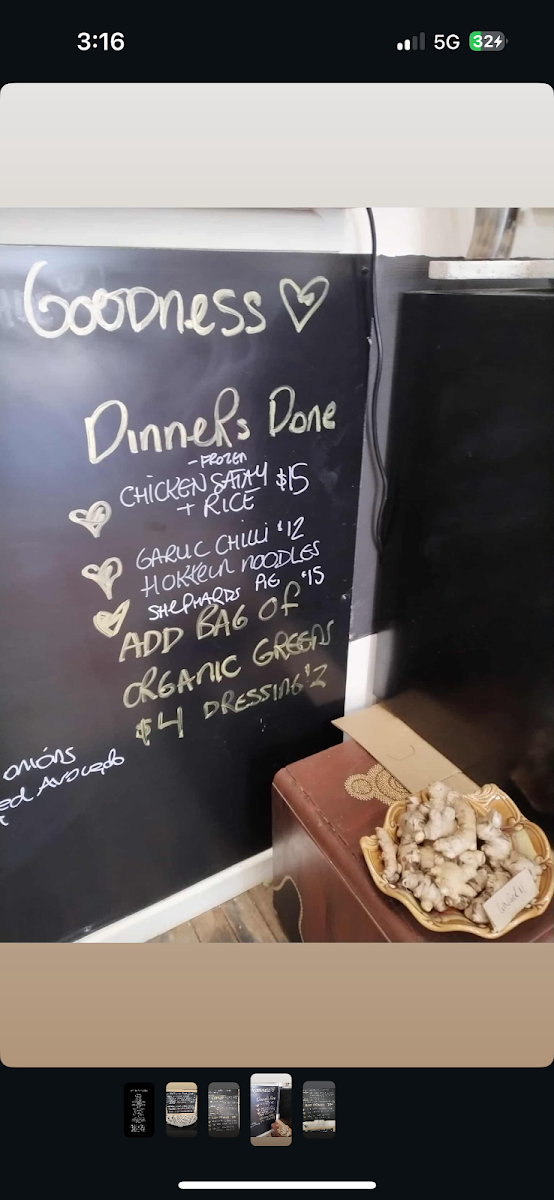 3:16
5G
32
GOODNESS
Dinners Done
- FROZEN
CHICKEN SATAY $15
+ RICE
GARLIC CHILLI $12
HOKKEIN NOODLES
SHEPHARDS PIE $15
ADD BAG OF
ORGANIC GREENS
$4 DRESSING $2
onions
ed Avocado